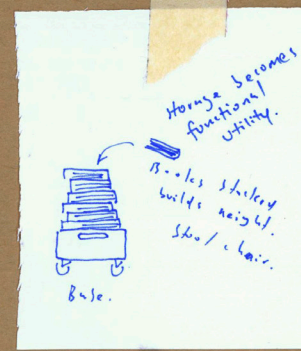 storage becomes
functional
utility.
Books stacked
builds height.
stool chair.
Base.